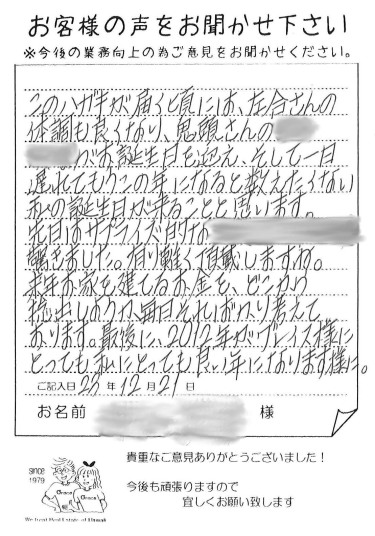 お客様の声をお聞かせ下さい
※今後の業務向上の為ご意見をお聞かせください。
このハガキが届く頃には、左合さんの
体調も良くなり、鬼頭さんの
がお誕生日を迎え、そして一日
遅れてもうこの年になると数えたくない
私の誕生日が来ることと思います。
先日はサプライズ的な
驚きました。有り難く頂戴しますね。
来年お家を建てるお金を、どこから
捻出しようか毎日そればかり考えて
おります。最後に、2012年がグレイス様に
とっても私にとっても良い年になります様に。
ご記入日 23年12月21日
お名前 様
貴重なご意見ありがとうございました！
今後も頑張りますので
宜しくお願い致します
since
1979
Grace
Grace
We Treat Real Estate of Dream